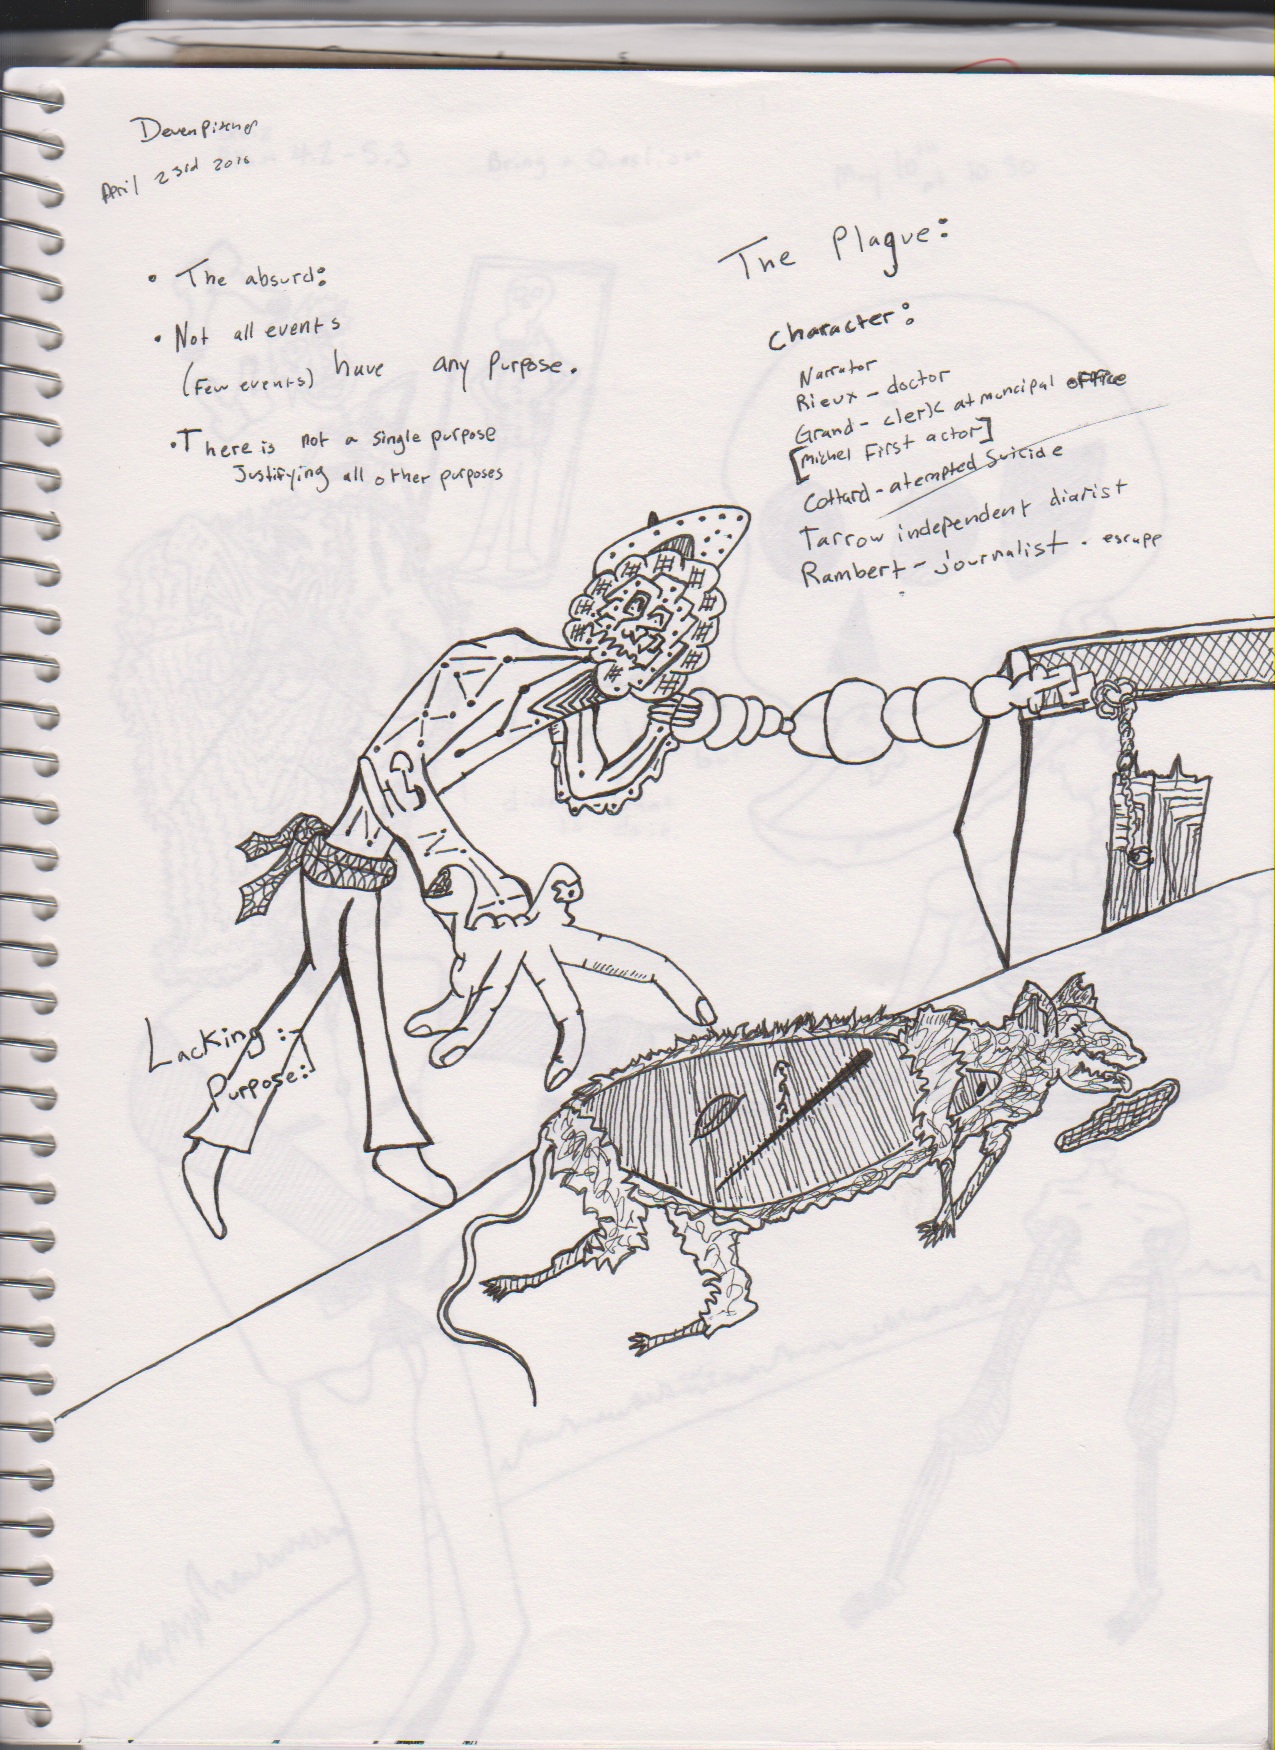 Deven Pitcher
April 23rd 2016
• The absurd:
• Not all events
(Few events) have any purpose.
• There is not a single purpose
Justifying all other purposes
The Plague:
Character:
Narrator
Rieux - doctor
Grand - clerk at muncipal office
[Michel First actor]
Cottard - atempted Suicide
Tarrow independent diarist
Rambert - journalist. escape
Lacking :-
Purpose:
4.2-5.3
Bring a Question
May 10th at 10:30